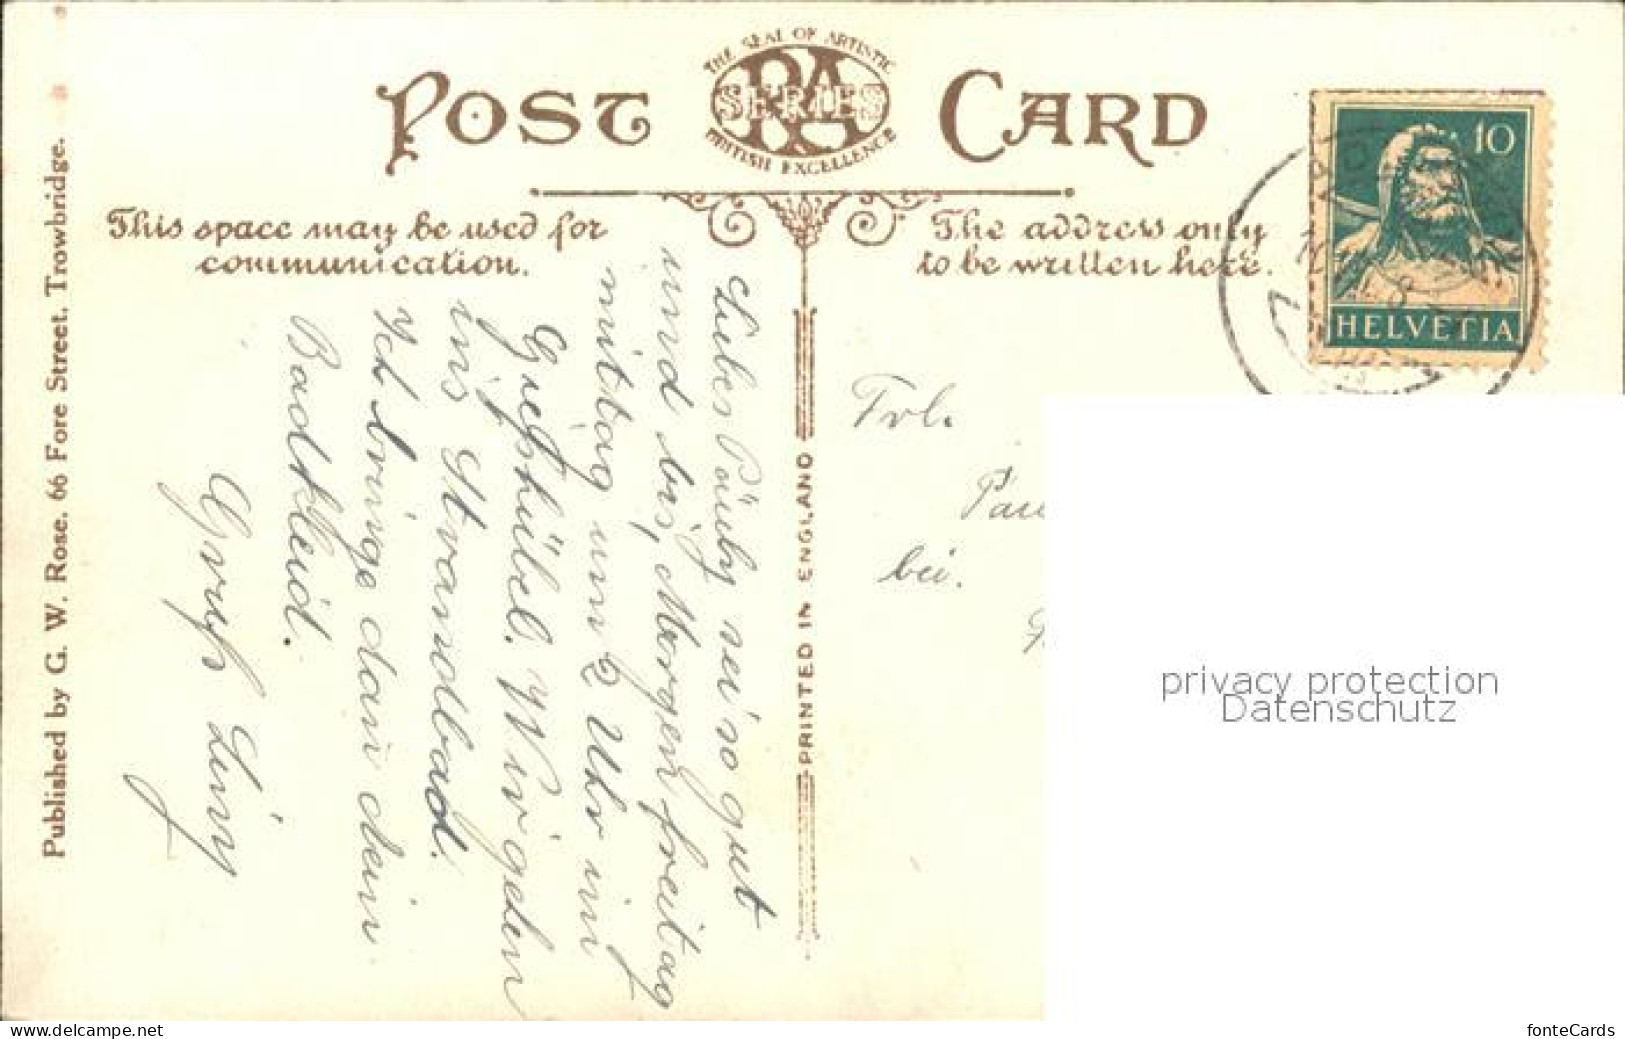 THE SEAL OF ARTISTIC
RA
SERIES
BRITISH EXCELLENCE
POST CARD
This space may be used for
communication.
The address only
to be written here.
10
HELVETIA
Published by G. W. Rose. 66 Fore Street, Trowbridge.
PRINTED IN ENGLAND
Liebes Pauly sei so gut
und bis, Morgen freitag
mittag um 2 Uhr im
Gießhübel. Wir gehen
ins Strandbad.
Ich bringe dan dein
Badkleid.
Gruß Liny
Frl.
Pau
bei.
privacy protection
Datenschutz
www.delcampe.net
fonteCards